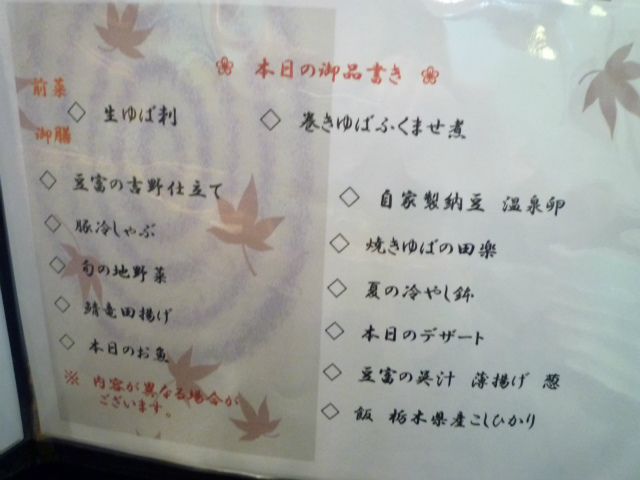 本日の御品書き
前菜
◇ 生ゆば刺
◇ 巻きゆばふくませ煮
御膳
◇ 豆富の吉野仕立て
◇ 豚冷しゃぶ
◇ 旬の地野菜
◇ 鯖竜田揚げ
◇ 本日のお魚
※ 内容が異なる場合が
ございます。
◇ 自家製納豆 温泉卵
◇ 焼きゆばの田楽
◇ 夏の冷やし鉢
◇ 本日のデザート
◇ 豆富の呉汁 薄揚げ 葱
◇ 飯 栃木県産こしひかり